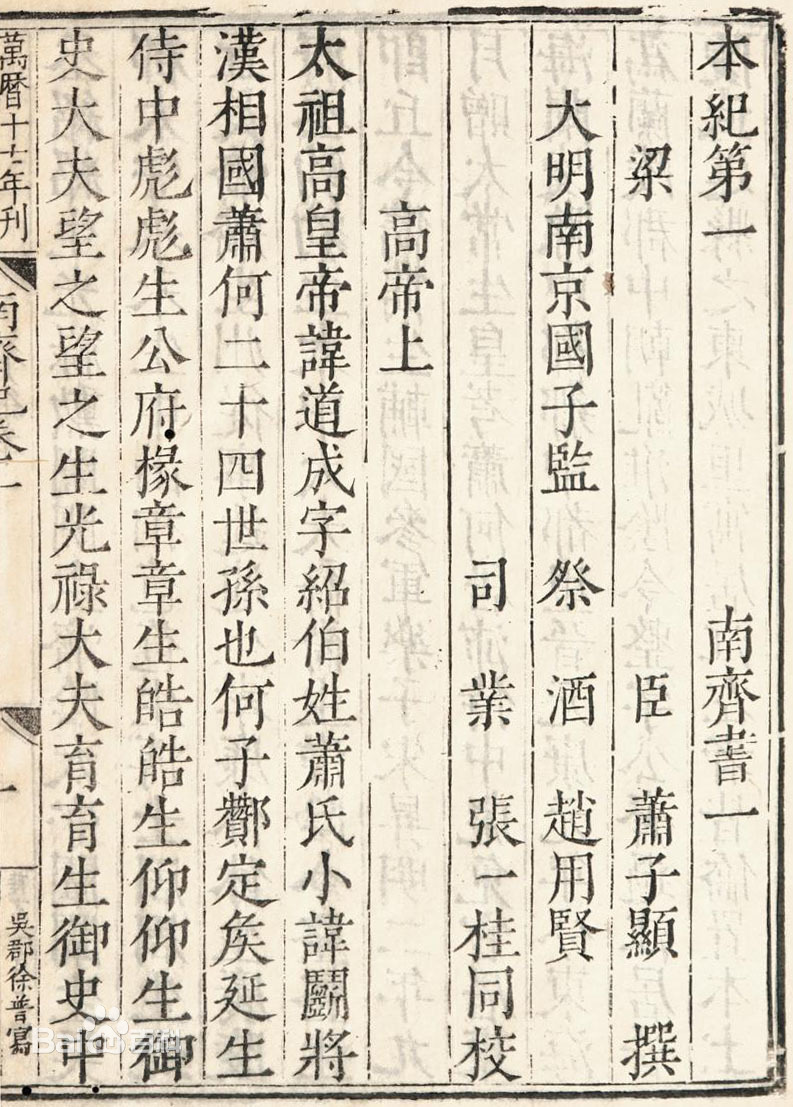 本紀第一 南齊書一
梁 臣 蕭子顯 撰
大明南京國子監 祭 酒 趙用賢
司 業 張一桂同校
高帝上
太祖高皇帝諱道成字紹伯姓蕭氏小諱鬭將
漢相國蕭何二十四世孫也何子酇定矦延生
侍中彪彪生公府掾章章生皓皓生仰仰生御
史大夫望之望之生光祿大夫育育生御史中
萬曆十七年刊
南齊紀卷一
一
吳郡徐普寫
Bai 百科